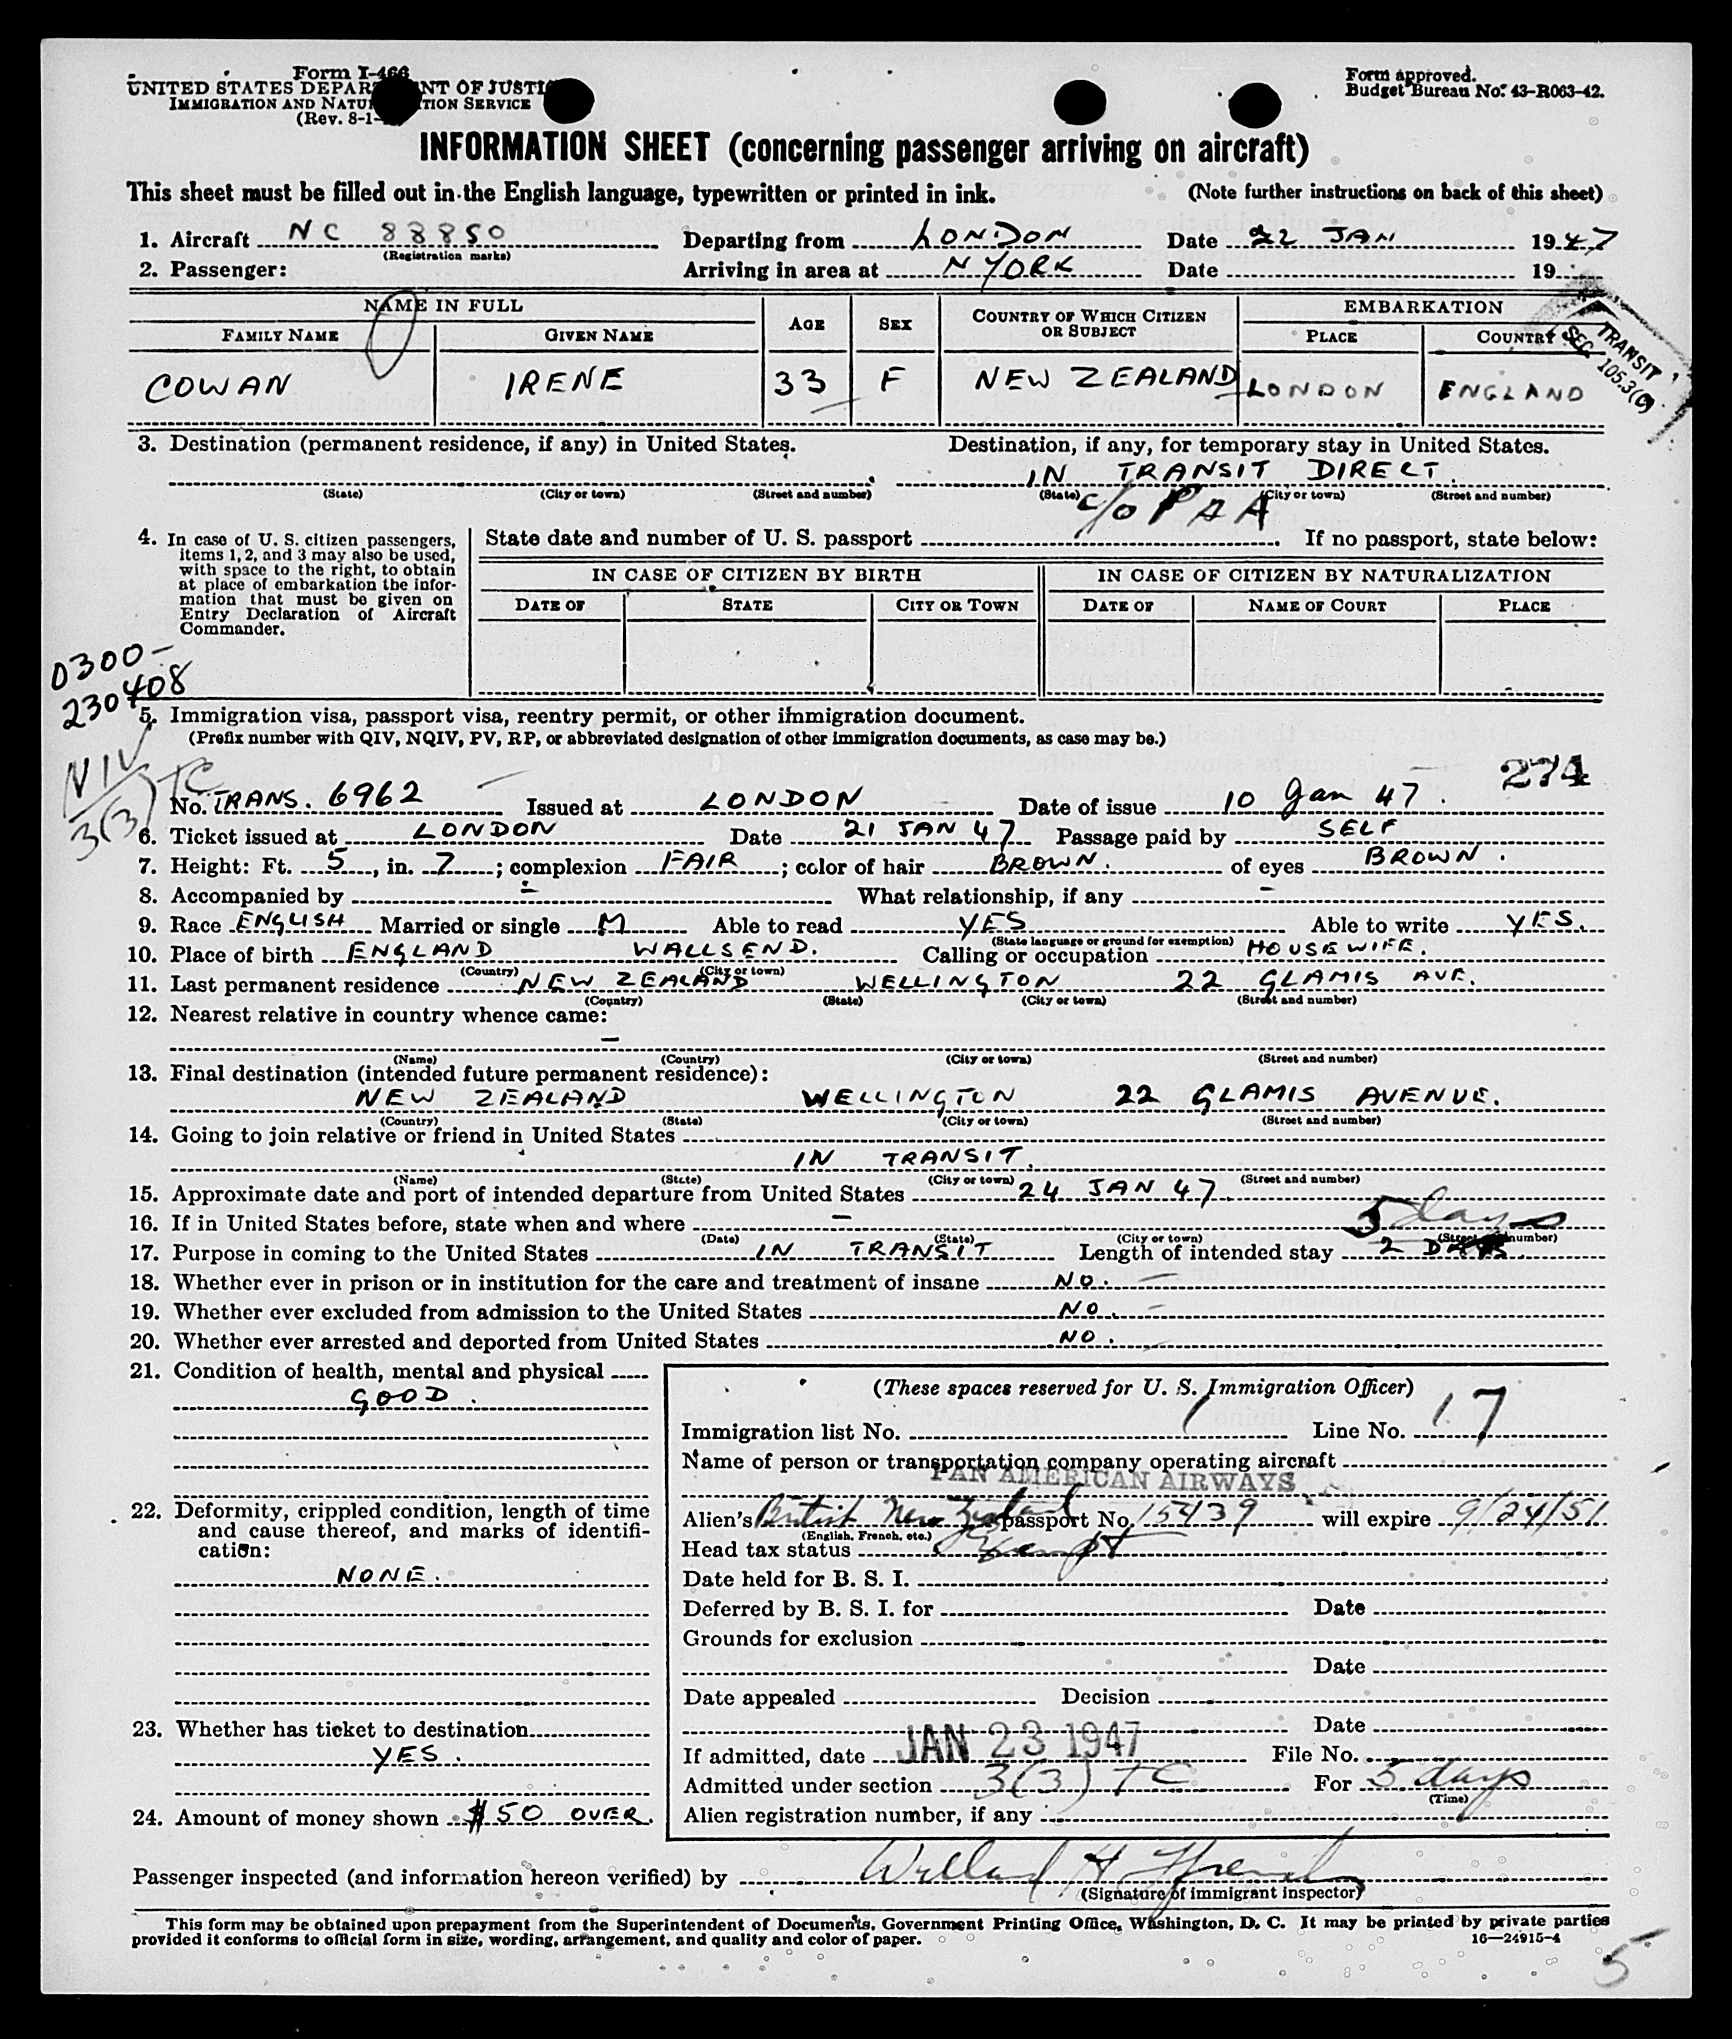 Form I-466
UNITED STATES DEPARTMENT OF JUSTICE
IMMIGRATION AND NATURALIZATION SERVICE
(Rev. 8-1-
Form approved.
Budget Bureau No. 43-R063-42.
INFORMATION SHEET (concerning passenger arriving on aircraft)
This sheet must be filled out in the English language, typewritten or printed in ink. (Note further instructions on back of this sheet)
1. Aircraft NC 88850 Departing from LONDON Date 22 JAN 1947
(Registration marks)
2. Passenger: Arriving in area at N YORK Date 19
NAME IN FULL AGE SEX COUNTRY OF WHICH CITIZEN OR SUBJECT EMBARKATION
FAMILY NAME GIVEN NAME PLACE COUNTRY
TRANSIT
SEC 105.3(c)
COWAN IRENE 33 F NEW ZEALAND LONDON ENGLAND
3. Destination (permanent residence, if any) in United States. Destination, if any, for temporary stay in United States.
IN TRANSIT DIRECT.
(State) (City or town) (Street and number) (State) (City or town) (Street and number)
c/o P A A
4. In case of U. S. citizen passengers, items 1, 2, and 3 may also be used, with space to the right, to obtain at place of embarkation the information that must be given on Entry Declaration of Aircraft Commander.
State date and number of U. S. passport If no passport, state below:
IN CASE OF CITIZEN BY BIRTH IN CASE OF CITIZEN BY NATURALIZATION
DATE OF STATE CITY OR TOWN DATE OF NAME OF COURT PLACE
0300-
230408
5. Immigration visa, passport visa, reentry permit, or other immigration document.
(Prefix number with QIV, NQIV, PV, RP, or abbreviated designation of other immigration documents, as case may be.)
NIV
3(3) TC
274
No. TRANS. 6962 Issued at LONDON Date of issue 10 Jan 47.
6. Ticket issued at LONDON Date 21 JAN 47 Passage paid by SELF
7. Height: Ft. 5, in. 7; complexion FAIR; color of hair BROWN. of eyes BROWN.
8. Accompanied by - What relationship, if any -
9. Race ENGLISH Married or single M Able to read YES Able to write YES.
(State language or ground for exemption)
10. Place of birth ENGLAND WALLSEND. Calling or occupation HOUSEWIFE.
(Country) (City or town)
11. Last permanent residence NEW ZEALAND WELLINGTON 22 GLAMIS AVE.
(Country) (State) (City or town) (Street and number)
12. Nearest relative in country whence came:
-
(Name) (Country) (City or town) (Street and number)
13. Final destination (intended future permanent residence):
NEW ZEALAND WELLINGTON 22 GLAMIS AVENUE.
(Country) (State) (City or town) (Street and number)
14. Going to join relative or friend in United States
IN TRANSIT.
(Name) (State) (City or town) (Street and number)
15. Approximate date and port of intended departure from United States 24 JAN 47.
16. If in United States before, state when and where - 5 days
(Date) (State) (City or town) (Street and number)
17. Purpose in coming to the United States IN TRANSIT Length of intended stay 2 DAYS.
18. Whether ever in prison or in institution for the care and treatment of insane NO.
19. Whether ever excluded from admission to the United States NO.
20. Whether ever arrested and deported from United States NO.
21. Condition of health, mental and physical
GOOD.
22. Deformity, crippled condition, length of time and cause thereof, and marks of identification:
NONE.
23. Whether has ticket to destination
YES.
24. Amount of money shown $50 OVER.
(These spaces reserved for U. S. Immigration Officer)
Immigration list No. 1 Line No. 17
Name of person or transportation company operating aircraft
PAN AMERICAN AIRWAYS
Alien's British New Zealand passport No. 153139 will expire 9/24/51
(English, French, etc.)
Head tax status Exempt
Date held for B. S. I.
Deferred by B. S. I. for Date
Grounds for exclusion
Date
Date appealed Decision
Date
If admitted, date JAN 23 1947 File No.
Admitted under section 3(3) TC For 5 days
(Time)
Alien registration number, if any
Passenger inspected (and information hereon verified) by
(Signature of immigrant inspector)
This form may be obtained upon prepayment from the Superintendent of Documents, Government Printing Office, Washington, D. C. It may be printed by private parties
provided it conforms to official form in size, wording, arrangement, and quality and color of paper. 16—24915-4
5